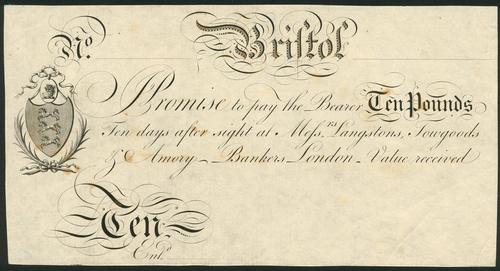 No. Bristol
Promise to pay the Bearer Ten Pounds
Ten days after sight at Messrs. Langstons, Towgoods
& Amory - Bankers London - Value received
Ten
Entd.